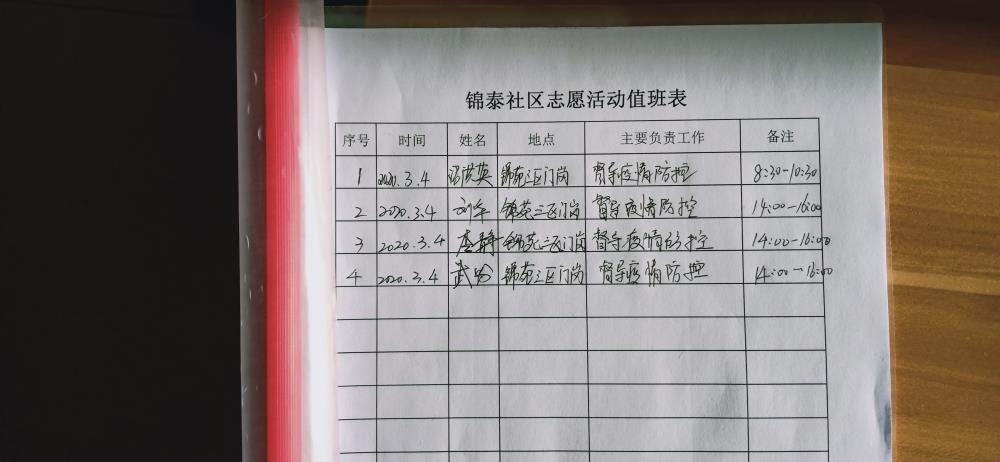 锦泰社区志愿活动值班表
序号 时间 姓名 地点 主要负责工作 备注
1 2020.3.4 洪英 锦苑三区门岗 督导疫情防控 8:30-10:30
2 2020.3.4 锦苑三区门岗 督导疫情防控 14:00-16:00
3 2020.3.4 李静 锦苑三区门岗 督导疫情防控 14:00-16:00
4 2020.3.4 武 锦苑三区门岗 督导疫情防控 14:00-16:00